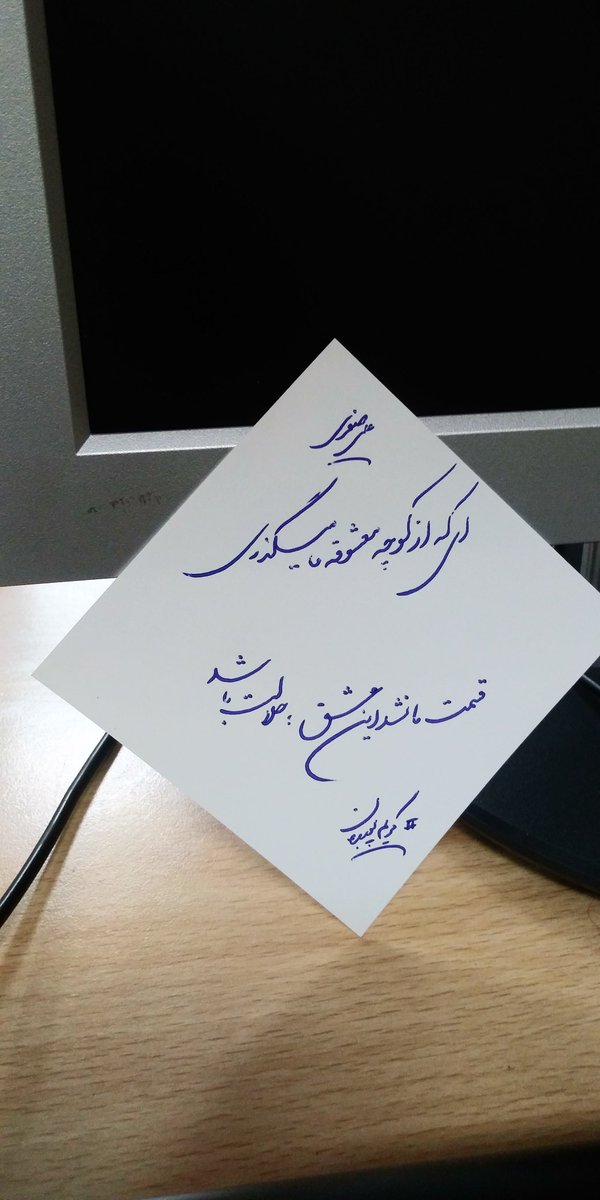 علی صفری
ای که از کوچه معشوقه ما میگذری
قسمت ما نشد این عشق؛ حلالت باشد